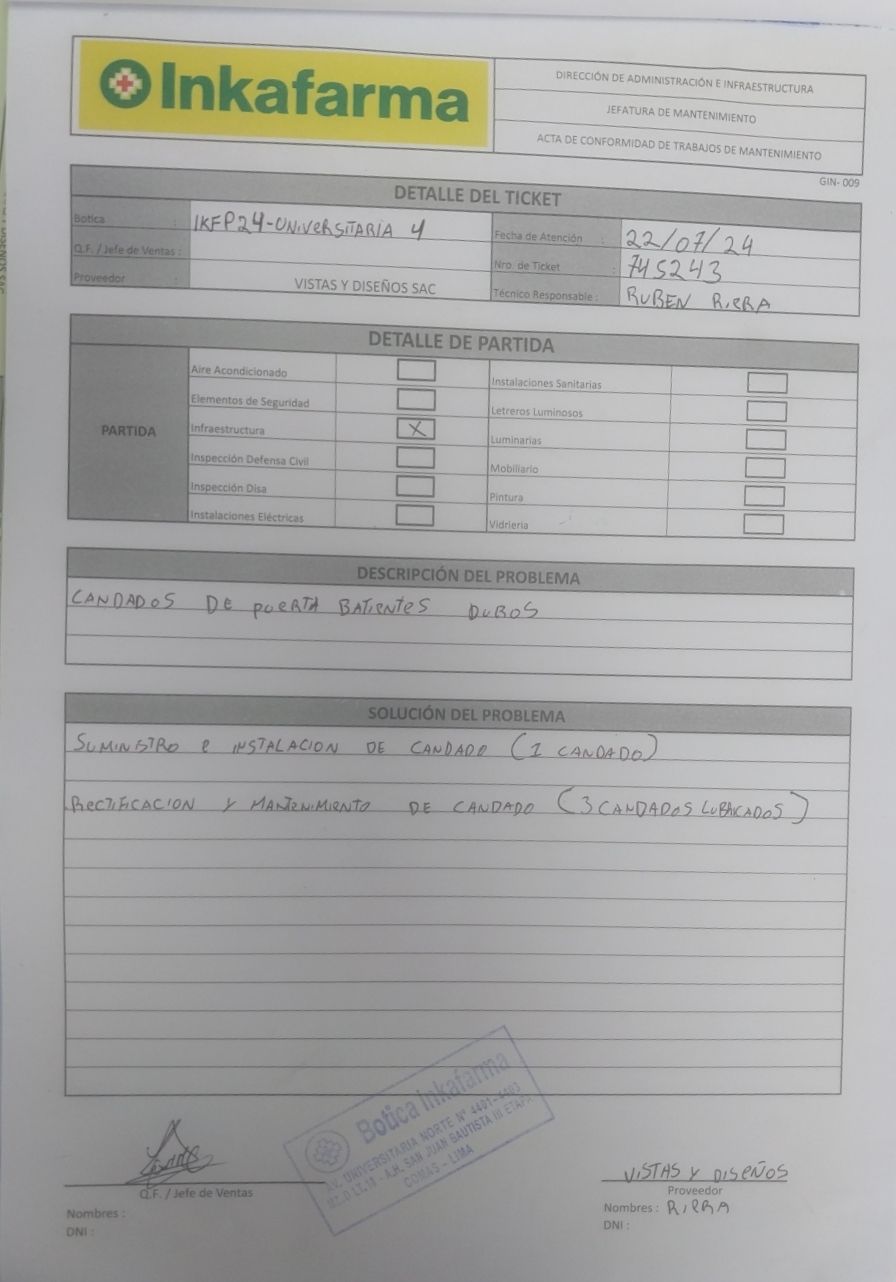 Inkafarma
DIRECCIÓN DE ADMINISTRACIÓN E INFRAESTRUCTURA
JEFATURA DE MANTENIMIENTO
ACTA DE CONFORMIDAD DE TRABAJOS DE MANTENIMIENTO
GIN- 009
DETALLE DEL TICKET
Botica : IKFP24-UNIVERSITARIA 4
Fecha de Atención : 22/07/24
Q.F. / Jefe de Ventas :
Nro. de Ticket : 745243
Proveedor : VISTAS Y DISEÑOS SAC
Técnico Responsable : RUBEN RIERA
DETALLE DE PARTIDA
PARTIDA
Aire Acondicionado
Elementos de Seguridad
Infraestructura X
Inspección Defensa Civil
Inspección Disa
Instalaciones Eléctricas
Instalaciones Sanitarias
Letreros Luminosos
Luminarias
Mobiliario
Pintura
Vidriería
DESCRIPCIÓN DEL PROBLEMA
CANDADOS DE PUERTA BATIENTES DUROS
SOLUCIÓN DEL PROBLEMA
SUMINISTRO e INSTALACION DE CANDADO (1 CANDADO)
RECTIFICACION Y MANTENIMIENTO DE CANDADO (3 CANDADOS LUBRICADOS)
Botica Inkafarma
AV. UNIVERSITARIA NORTE N° 4491-4493
MZ.D LT.18 - A.H. SAN JUAN BAUTISTA III ETAPA
COMAS - LIMA
Q.F. / Jefe de Ventas
Nombres :
DNI :
VISTAS Y DISEÑOS
Proveedor
Nombres : RIERA
DNI :